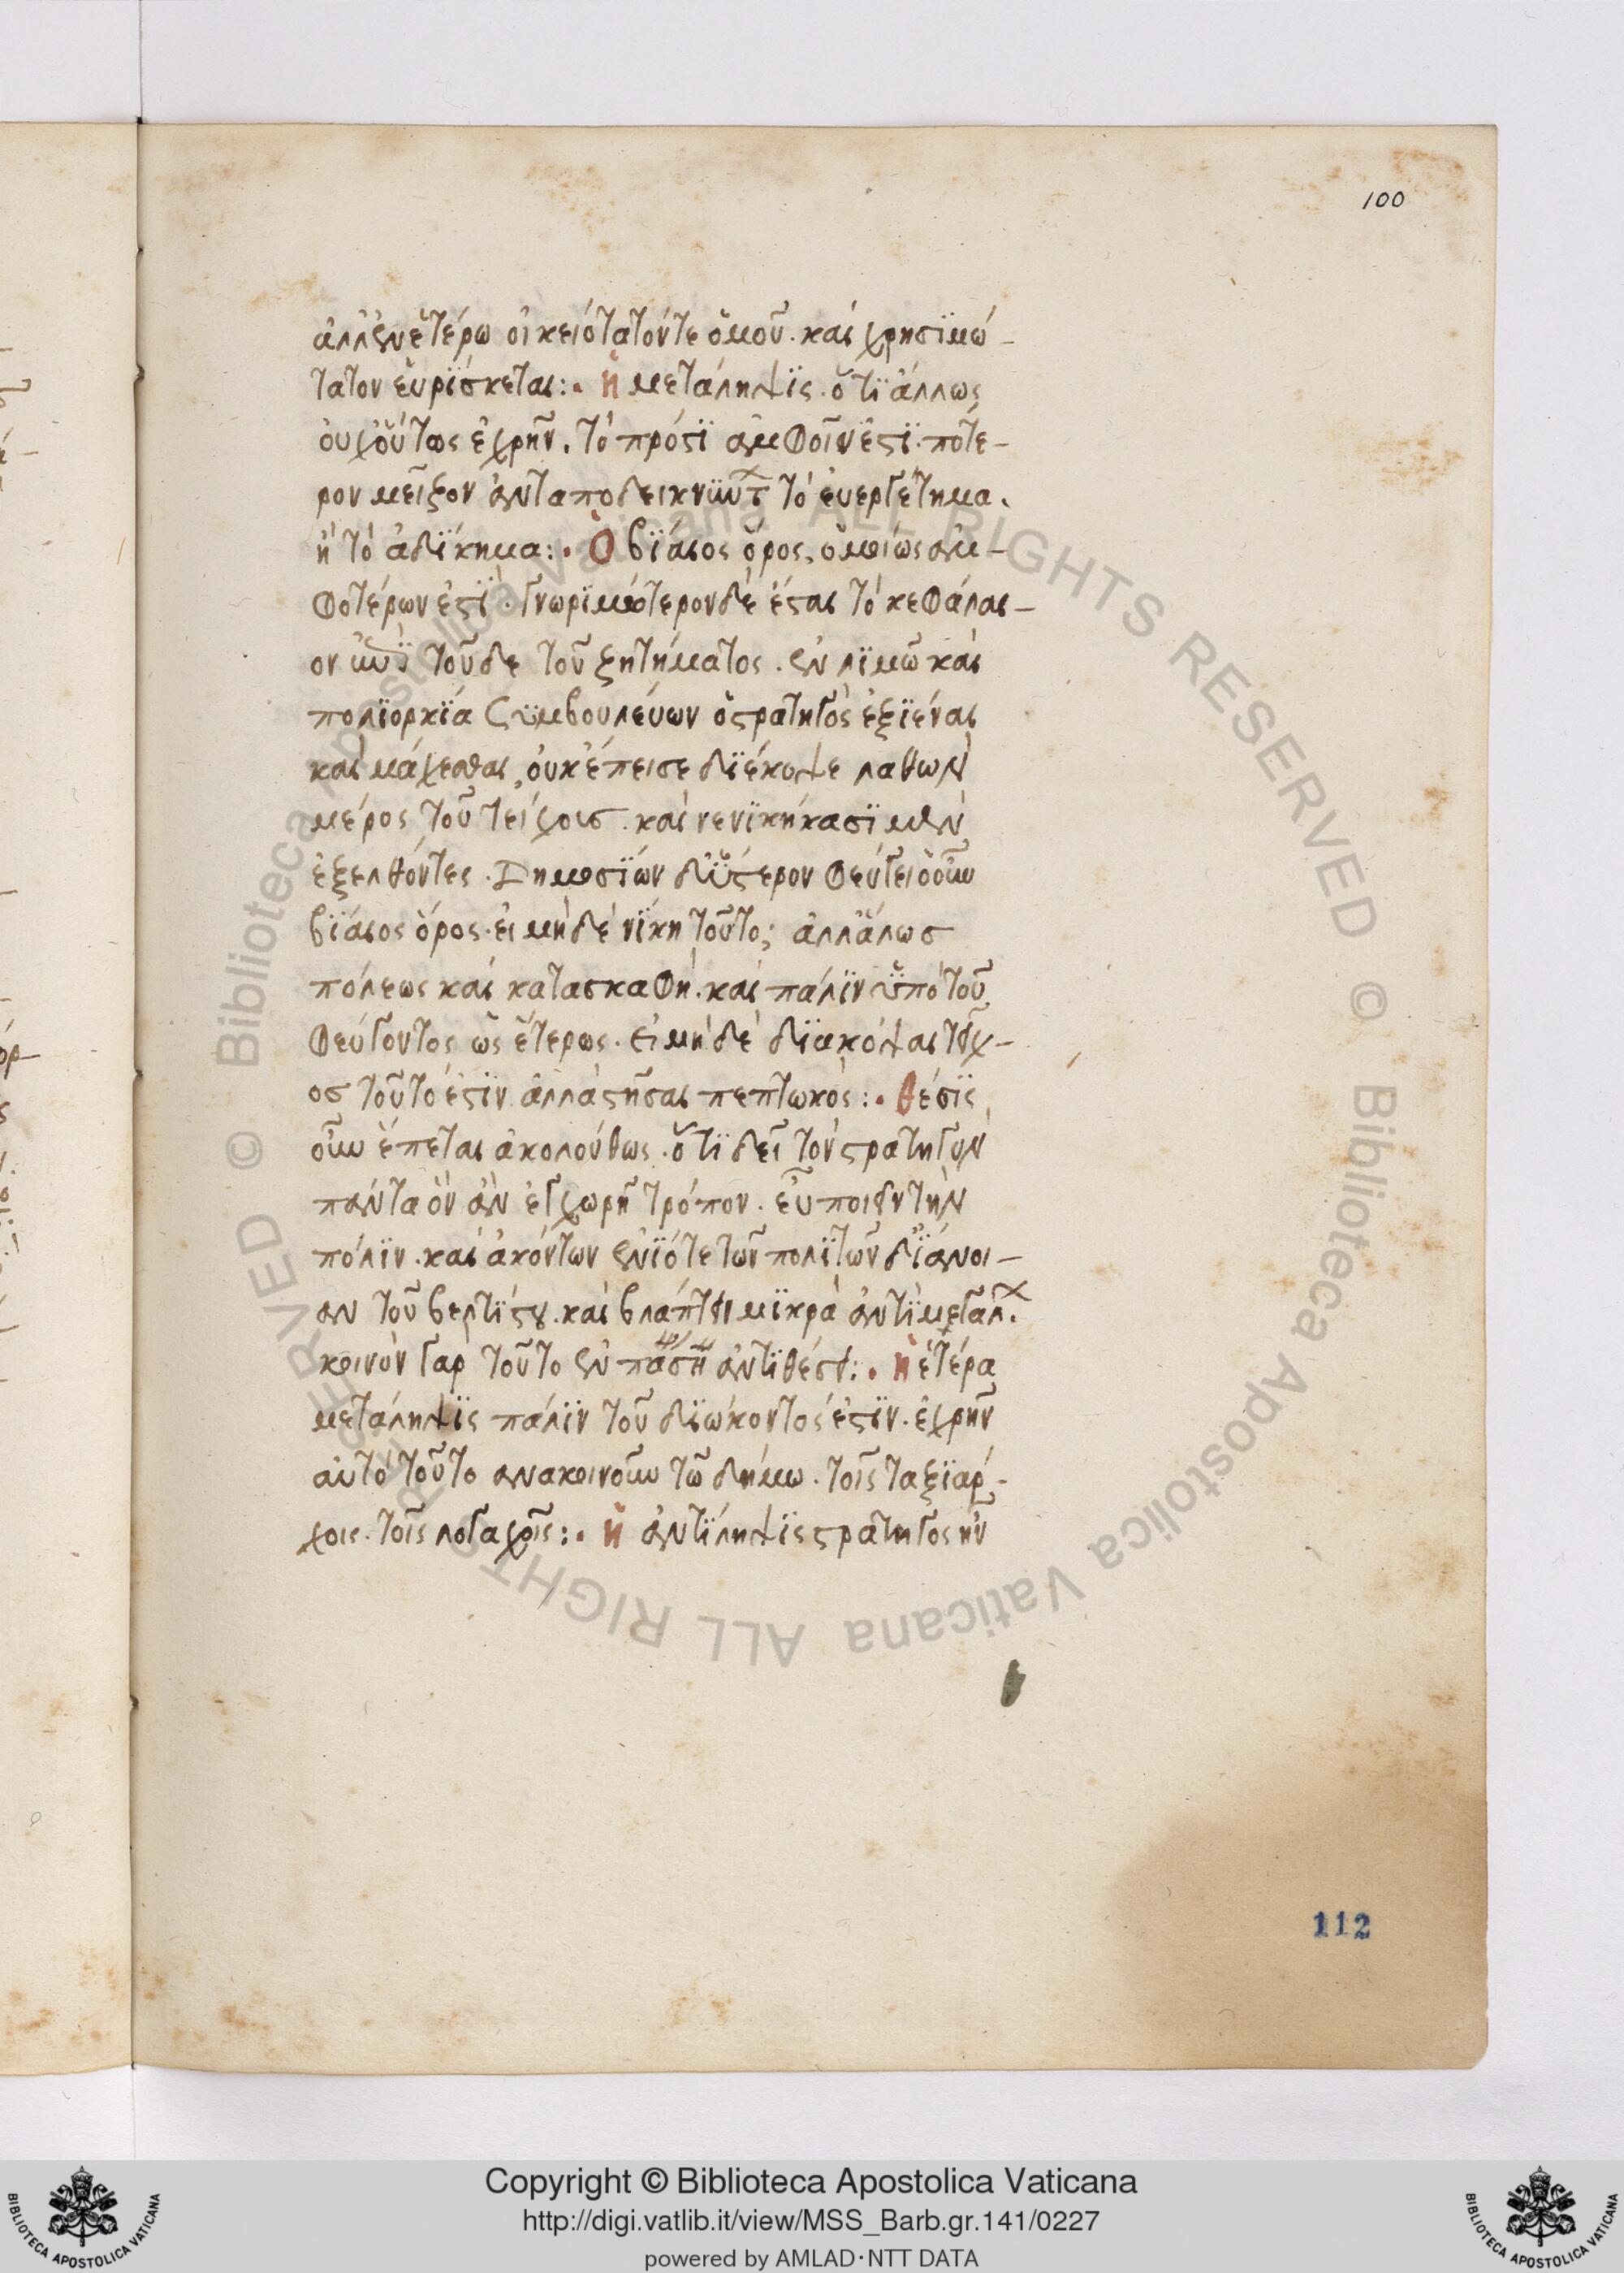 100
ἀλλ' ἐν ἑτέρω οἰκειότατόντε ὁμοῦ. καὶ χρησϊμώ-
τατον ἑυρΐσκεται:· ἡ μετάληψϊς. ὅτϊ ἄλλως
ὀυχ' ὅυτως ἐχρῆν. τὸ πρόσϊ ἀμφοῖν ἐστϊ. πότε-
ρον μεῖζον ἀνταποδεικνϋντ τὸ ἐυεργέτημα.
ἢ τὸ ἀδΐκημα:· Ὁ βΐαιος ὅρος, ὁμοίως ἀμ-
φοτέρων ἐστΐ. γνωρϊμότερον δὲ ἔσται τὸ κεφάλαι-
ον τοῦδε τοῦ ζητήματος. ἐν λϊμῶ καὶ
πολϊορκΐα ςϋμβουλεύων ὁ στρατηγὸς ἐξϊέναι
καὶ μάχεσθαι, ὀυκ ἔπεισε δϊέκοψε λαθὼν
μέρος τοῦ τείχους. καὶ νενϊκήκασϊ μὲν
ἐξελθόντες. Δημοσΐων δ' ὕστερον φεύγει ὁ οὖν
βΐαιος ὅρος. ει μὴ δὲ νΐκη τοῦτο; ἀλλ' ἅλωσ
πόλεως καὶ κατασκαφή. καὶ πάλϊν ὑπὸ τοῦ
φεύγοντος ὡς ἑτέρως. ει μὴ δὲ δϊακόψαι τεῖχ-
οσ τοῦτο ἐστϊν ἀλλὰ στῆσαι πεπτωκός:· θέσϊς
οὖν ἕπεται ἀκολούθως. ὅτϊ δεῖ τὸν στρατηγὸν
πάντα ὃν ἂν ἐγχωρῆ τρόπον. εὖ ποιεῖν τὴν
πόλϊν. καὶ ἀκόντων ἐνϊότε τῶν πολϊτῶν δϊ' ἄνοι-
αν τοῦ βελτΐστου. καὶ βλάπτει μϊκρὰ ἀντϊμεταλ.
κοινὸν γὰρ τοῦτο ἐν πάσῃ ἀντϊθέσει:· ἡ ἑτέρα
μετάληψϊς πάλϊν τοῦ δϊώκοντος ἐστϊν. ἐχρῆν
αὐτὸ τοῦτο ἀνακοινοῦν τῶ δήμω. τοῖς ταξϊάρ-
χοις. τοῖς λοχαγοῖς:· ἡ ἀντΐληψϊς στρατηγὸς ἦν
112
Copyright © Biblioteca Apostolica Vaticana
http://digi.vatlib.it/view/MSS_Barb.gr.141/0227
powered by AMLAD·NTT DATA
BIBLIOTECA APOSTOLICA VATICANA
BIBLIOTECA APOSTOLICA VATICANA
© Biblioteca Apostolica Vaticana ALL RIGHTS RESERVED
© Biblioteca Apostolica Vaticana ALL RIGHTS RESERVED